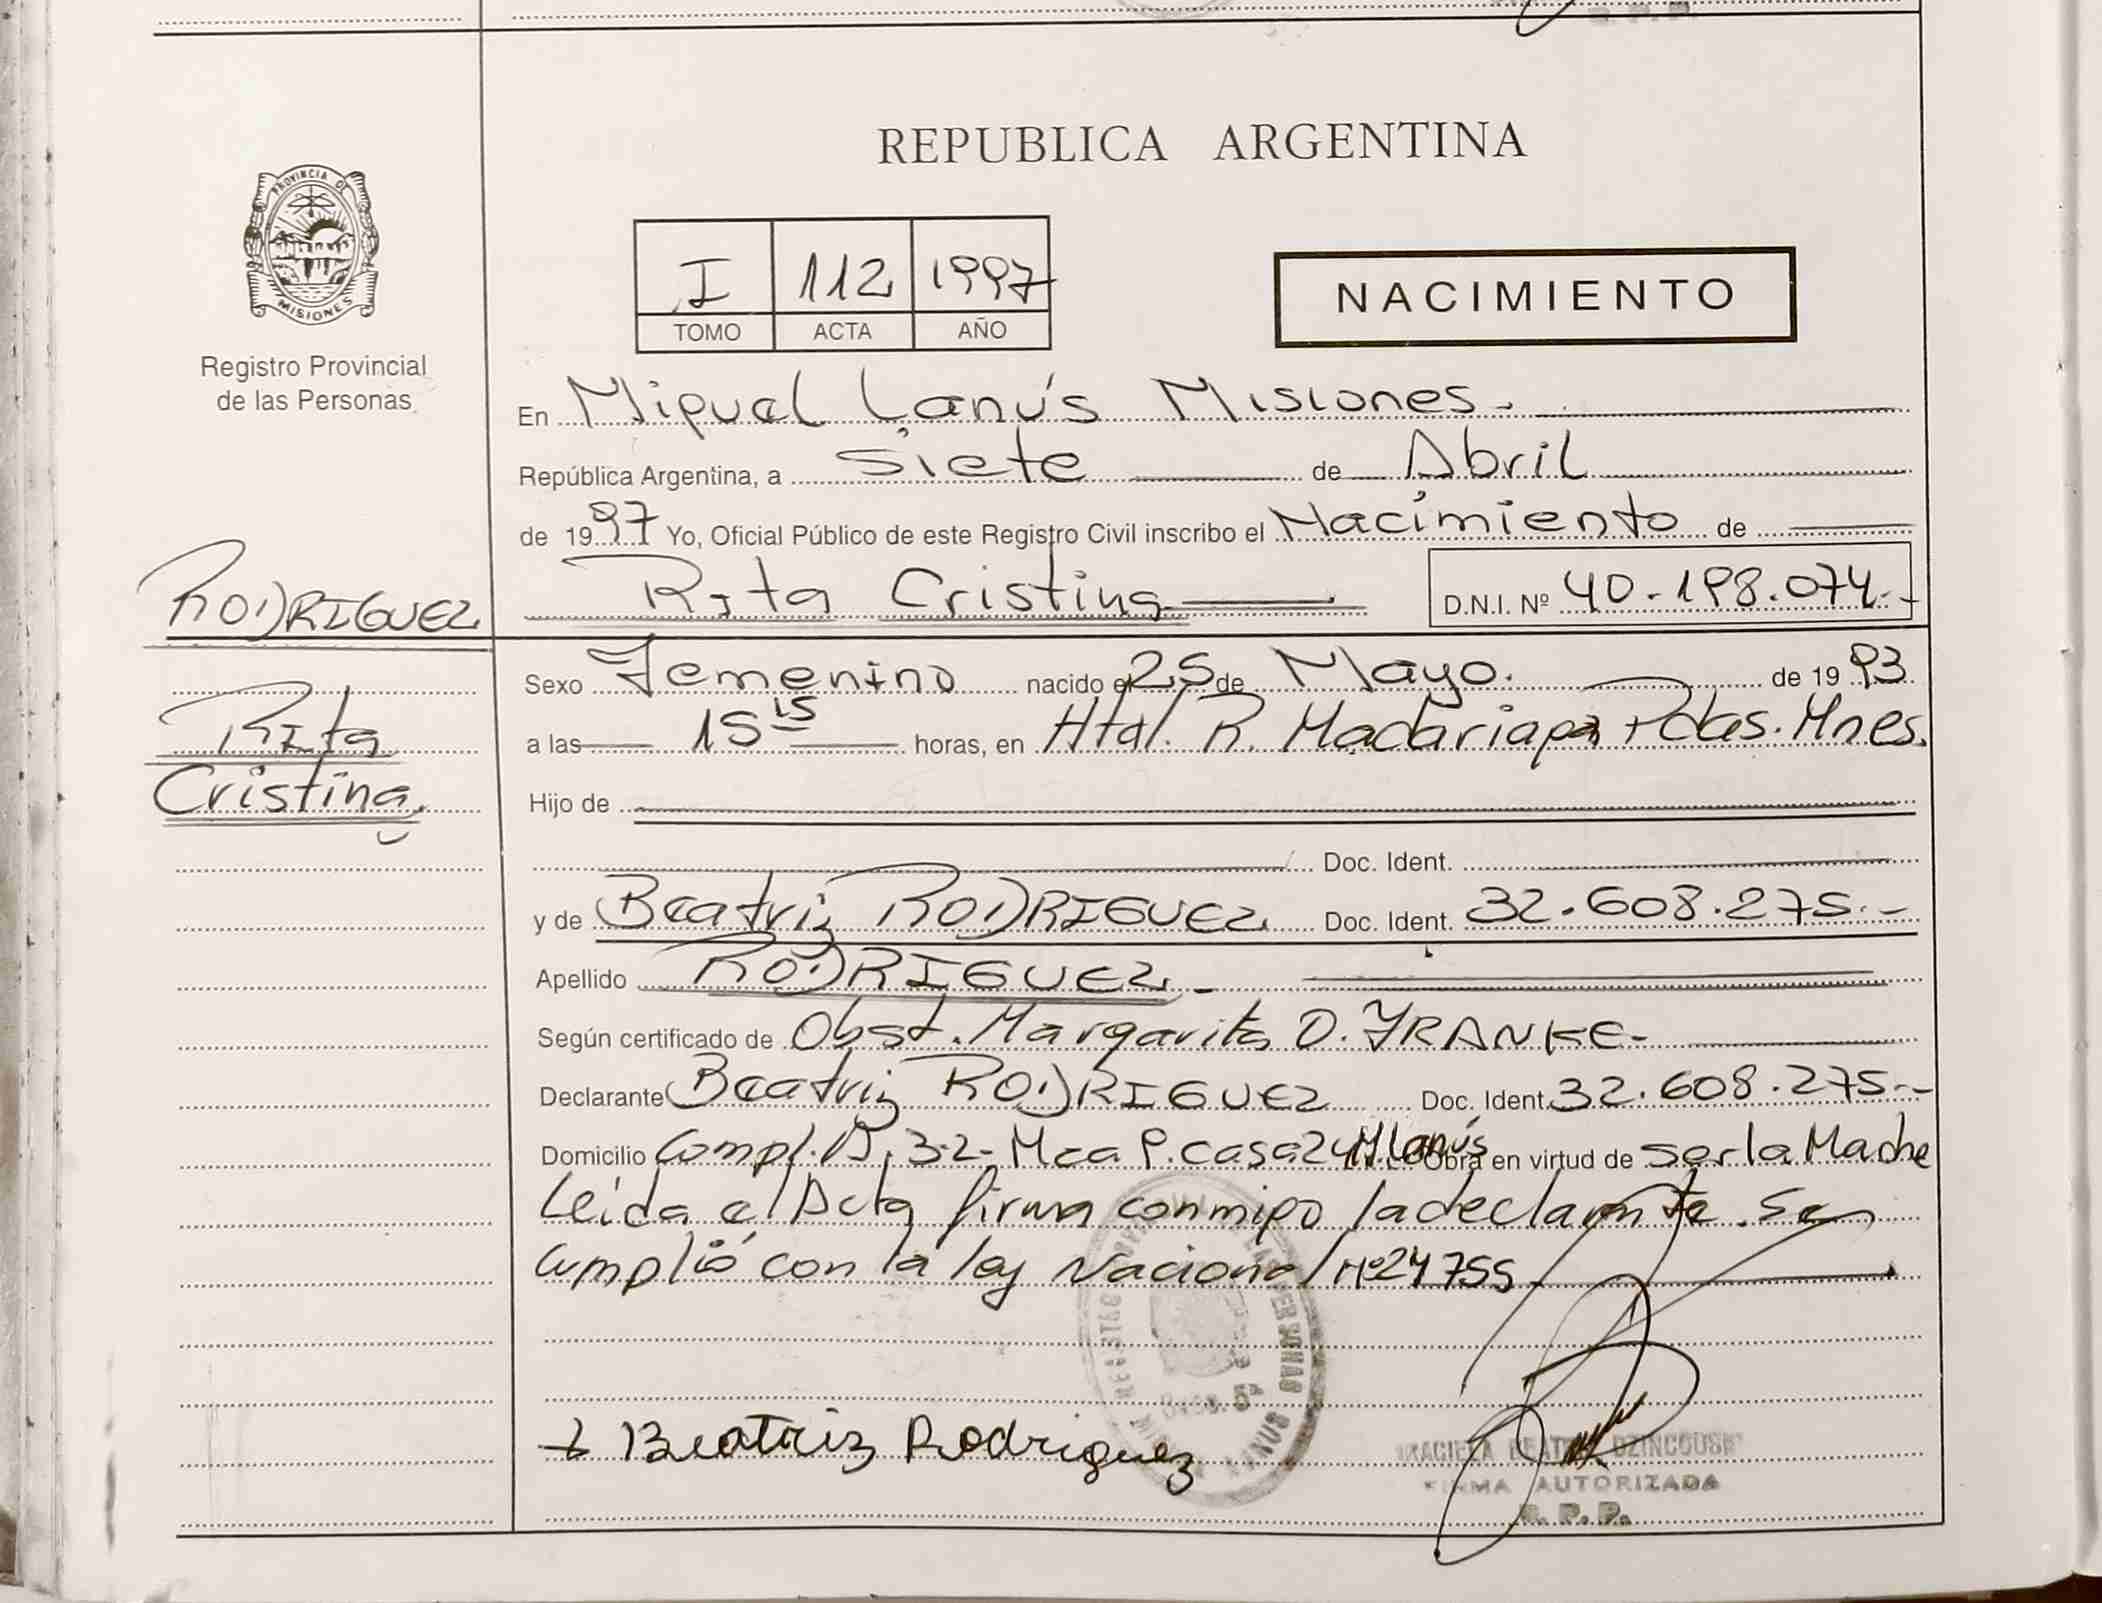 REPUBLICA ARGENTINA
PROVINCIA DE
MISIONES
Registro Provincial
de las Personas
I 112 1997
TOMO ACTA AÑO
NACIMIENTO
En Miguel Lanús Misiones.
República Argentina, a siete de Abril
de 1997 Yo, Oficial Público de este Registro Civil inscribo el Nacimiento de
Rita Cristina D.N.I. Nº 40.198.074.-
RODRIGUEZ
Rita
Cristina
Sexo Femenino nacido el 25 de Mayo. de 1993
a las 15 15 horas, en Htal. R. Madariaga Pdas. Mnes.
Hijo de
Doc. Ident.
y de Beatriz RODRIGUEZ Doc. Ident. 32.608.275.-
Apellido RODRIGUEZ.-
Según certificado de Obst. Margarita D. FRANKE-
Declarante Beatriz RODRIGUEZ Doc. Ident. 32.608.275.-
Domicilio Compl. B. 32- Mca P. casa 24 M Lanús Obra en virtud de ser la Madre
Leida el Acta firma conmigo la declarante. Se
cumplió con la ley Nacional Nº 24755
Beatriz Rodriguez
BEATRIZ DZINCOUSKI
FIRMA AUTORIZADA
R. P. P.